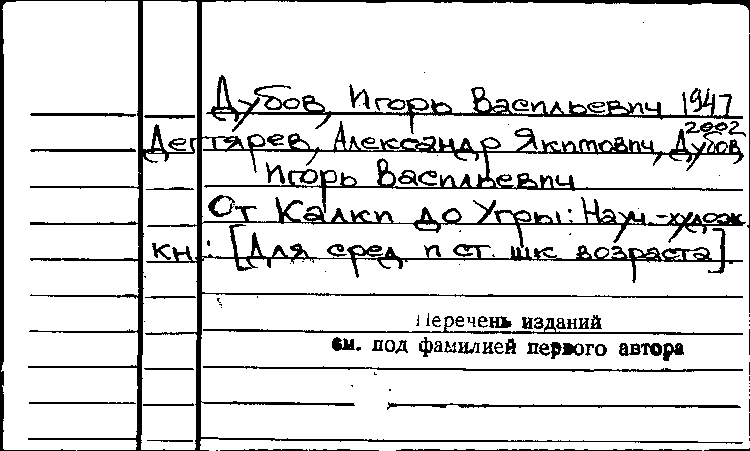 Дубов, Игорь Васильевич 1947
2002
Дегтярев, Александр Якимович, Дубов,
Игорь Васильевич
От Калки до Угры: Науч.-худож.
кн.: [Для сред и ст. шк возраста].
Перечень изданий
см. под фамилией первого автора